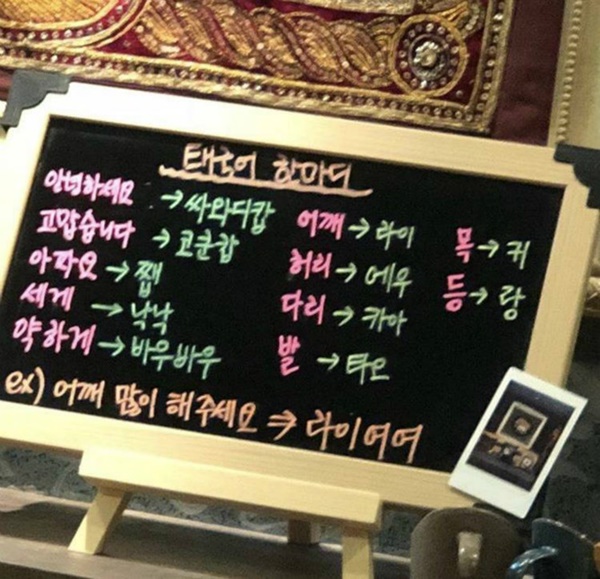 태국어 한마디
안녕하세요 → 싸와디캅
고맙습니다 → 코쿤캅
아파요 → 쨉
세게 → 낙낙
약하게 → 바우바우
어깨 → 라이
허리 → 에우
다리 → 카아
발 → 타오
목 → 귀
등 → 랑
ex) 어깨 많이 해주세요 ⇒ 라이여여